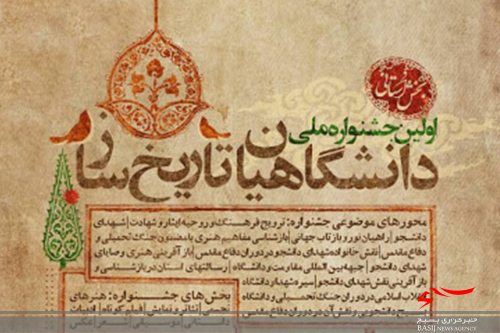 بخش استانی
اولین جشنواره ملی
دانشگاهیان تاریخ ساز
محورهای موضوعی جشنواره: ترویج فرهنگ و روحیه ایثار و شهادت | شهدای
دانشجو | راهیان نور و بازتاب جهانی | بازشناسی مفاهیم هنری با مضمون جنگ تحمیلی و
دفاع مقدس | نقش خانواده شهدای دانشجو در دوران دفاع مقدس | بازآفرینی هنری وصایای
شهدای دانشجو | جبهه بین المللی مقاومت و دانشگاه | رسالتهای استان در بازشناسی و
بازآفرینی نقش شهدای دانشجو | سیره شهدا و دانشگاه
انقلاب اسلامی در دوران جنگ تحمیلی و دانشگاه
دفاع مقدس
بخش های جشنواره: هنرهای
تجسمی | تئاتر و نمایش | فیلم کوتاه | ادبیات
خبرگزاری بسیج
BASIJ NEWS AGENCY